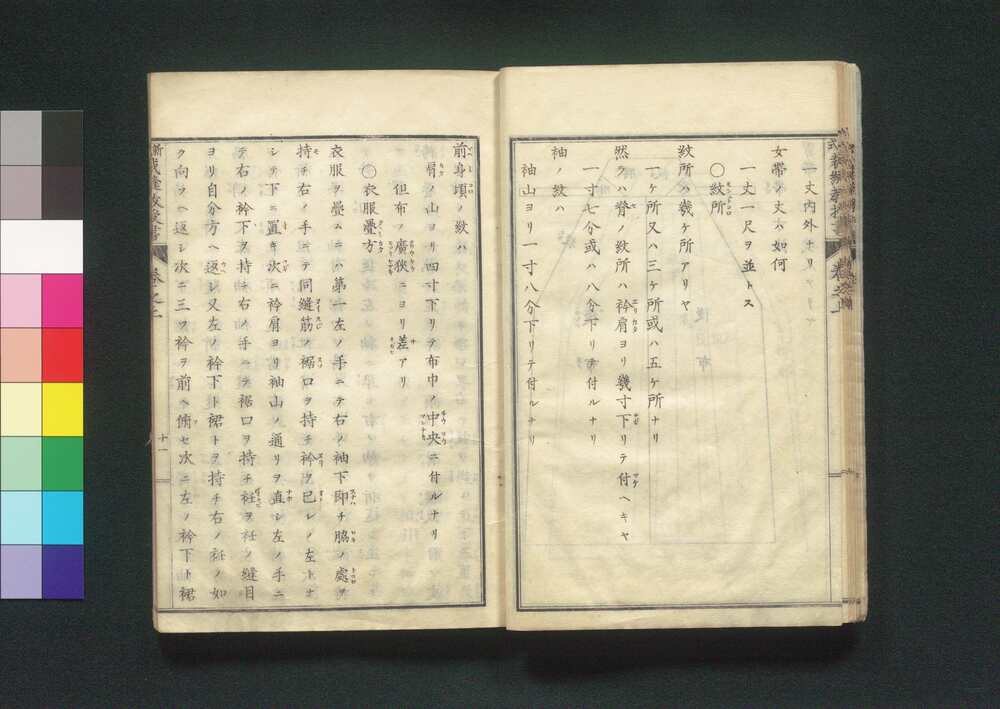 一丈内外ナリ
女帯ノ丈ハ如何
一丈一尺ヲ並トス
〇紋所
紋所ハ幾ケ所アリヤ
一ケ所又ハ三ケ所或ハ五ケ所ナリ
然ラハ脊ノ紋所ハ衿肩ヨリ幾寸下リテ付ヘキヤ
一寸七分或ハ八分下リテ付ルナリ
袖ノ紋ハ
袖山ヨリ一寸八分下リテ付ルナリ
前身頃ノ紋ハ
肩ノ山ヨリ四寸下リテ布巾ノ中央ニ付ルナリ
但布ノ廣狹ニヨリ差アリ
〇衣服疊方
衣服ヲ疊ムニハ第一左ノ手ニテ右ノ袖下即チ脇ノ處ヲ
持チ右ノ手ニテ同縫筋ノ裾口ヲ持チ衿ヲ己レノ左トナ
シテ下ニ置キ次ニ衿肩ヨリ袖山ノ通リヲ直シ左ノ手ニ
テ右ノ衿下ヲ持チ右ノ手ニテ裾口ヲ持チ衽ヲ衽ノ縫目
ヨリ自分方ヘ返シ又左ノ衿下ト裾トヲ持チ右ノ衽ノ如
ク向フヘ返シ次ニ三ツ衿ヲ前ヘ俯セ次ニ左ノ衿下ト裾
卷之上
十一